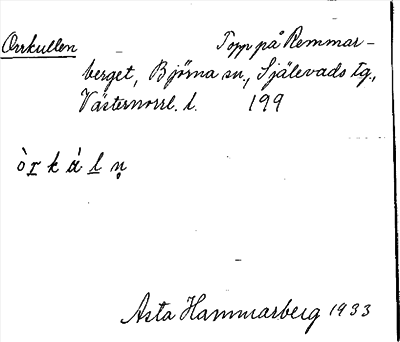 Orrkullen Topp på Remmar-
berget, Björna sn., Själevads tg.,
Västernorrl. l. 199
ò r k ù l n̥
Asta Hammarberg 1933